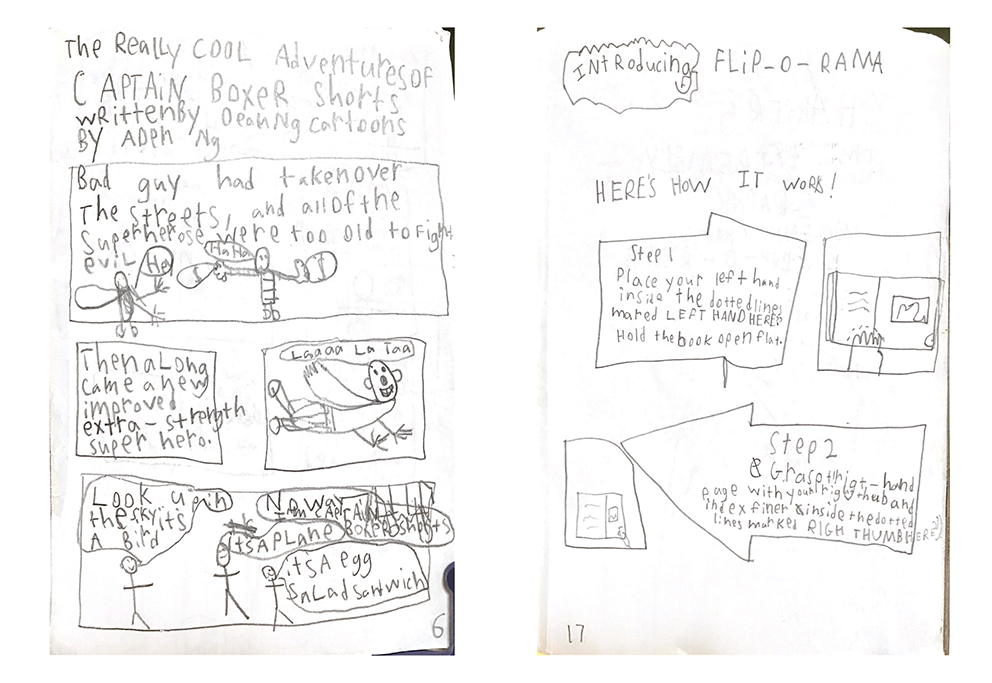 The Really COOL Adventures of
CAPTAIN BOXER Shorts
WRitten By Dean Ng cartoons
By ADEN Ng
Bad guy had taken over
The streets, and all of the
Superherose were too old to fight
evil
Hey
Ha Ha
Then a Long
came a new
improved
extra-strength
super hero.
Laaaa La Taa
Look up in
the sky its
A Bird
ItsA PLane
No way
I am CAPtAiN
BOXER Shorts
itsA egg
SaLad santwich
6
INtRoducing FLiP-O-RAMA
HERE'S HOW IT WORK!
Step 1
Place your left hand
inside the dotted lines
mared LEFT HAND HERE?
Hold the book open flat.
Step 2
Grasp the higt-hand
page with your right theub and
index finer inside the dotted
lines marked RIGH THUMB HERE?
17